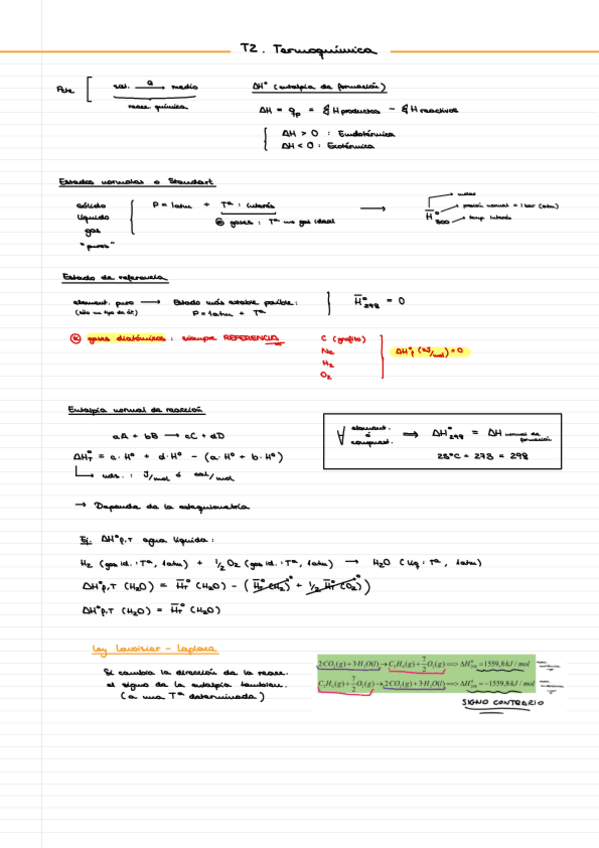 T2. Termoquímica
sist. Q medio
reacc química
ΔH° (entalpía de formación)
ΔH = qp = ΣH productos - ΣH reactivos
ΔH > 0 : Endotérmica
ΔH < 0 : Exotérmica
Estados normales o Standart
sólido
líquido
gas
"puros"
P = 1atm + Tª : interés
gases : Tª gas ideal
H° 300
molar
presión normal = 1 bar (atm)
temp. interés
Estado de referencia
element. puro → Estado más estable posible :
(sólo un tipo de át.) P = 1atm + Tª
H°298 = 0
gases diatómicos : siempre REFERENCIA
C (grafito)
N2
H2
O2
ΔH°f (kJ/mol) = 0
Entalpía normal de reacción
aA + bB → cC + dD
ΔH°T = c · H° + d · H° - (a · H° + b · H°)
uds. : J/mol ó cal/mol
∀ element. ó compuest. ⇒ ΔH°298 = ΔH normal de formación
25°C + 273 = 298
→ Depende de la estequiometría
Ej: ΔH°f,T agua líquida :
H2 (gas id. : Tª, 1atm) + 1/2 O2 (gas id. : Tª, 1atm) → H2O (líq : Tª, 1atm)
ΔH°f,T (H2O) = H°T (H2O) - (H°T (H2) + 1/2 H°T (O2))
ΔH°f,T (H2O) = H°T (H2O)
Ley Lavoisier - Laplace
Si cambia la dirección de la reacc.
el signo de la entalpía también.
(a una Tª determinada)
2CO2(g) + 3H2O(l) → C2H6(g) + 7/2 O2(g) ⟹ ΔH°298 = 1559,8 kJ / mol
C2H6(g) + 7/2 O2(g) → 2CO2(g) + 3H2O(l) ⟹ ΔH°298 = −1559,8 kJ / mol
SIGNO CONTRARIO